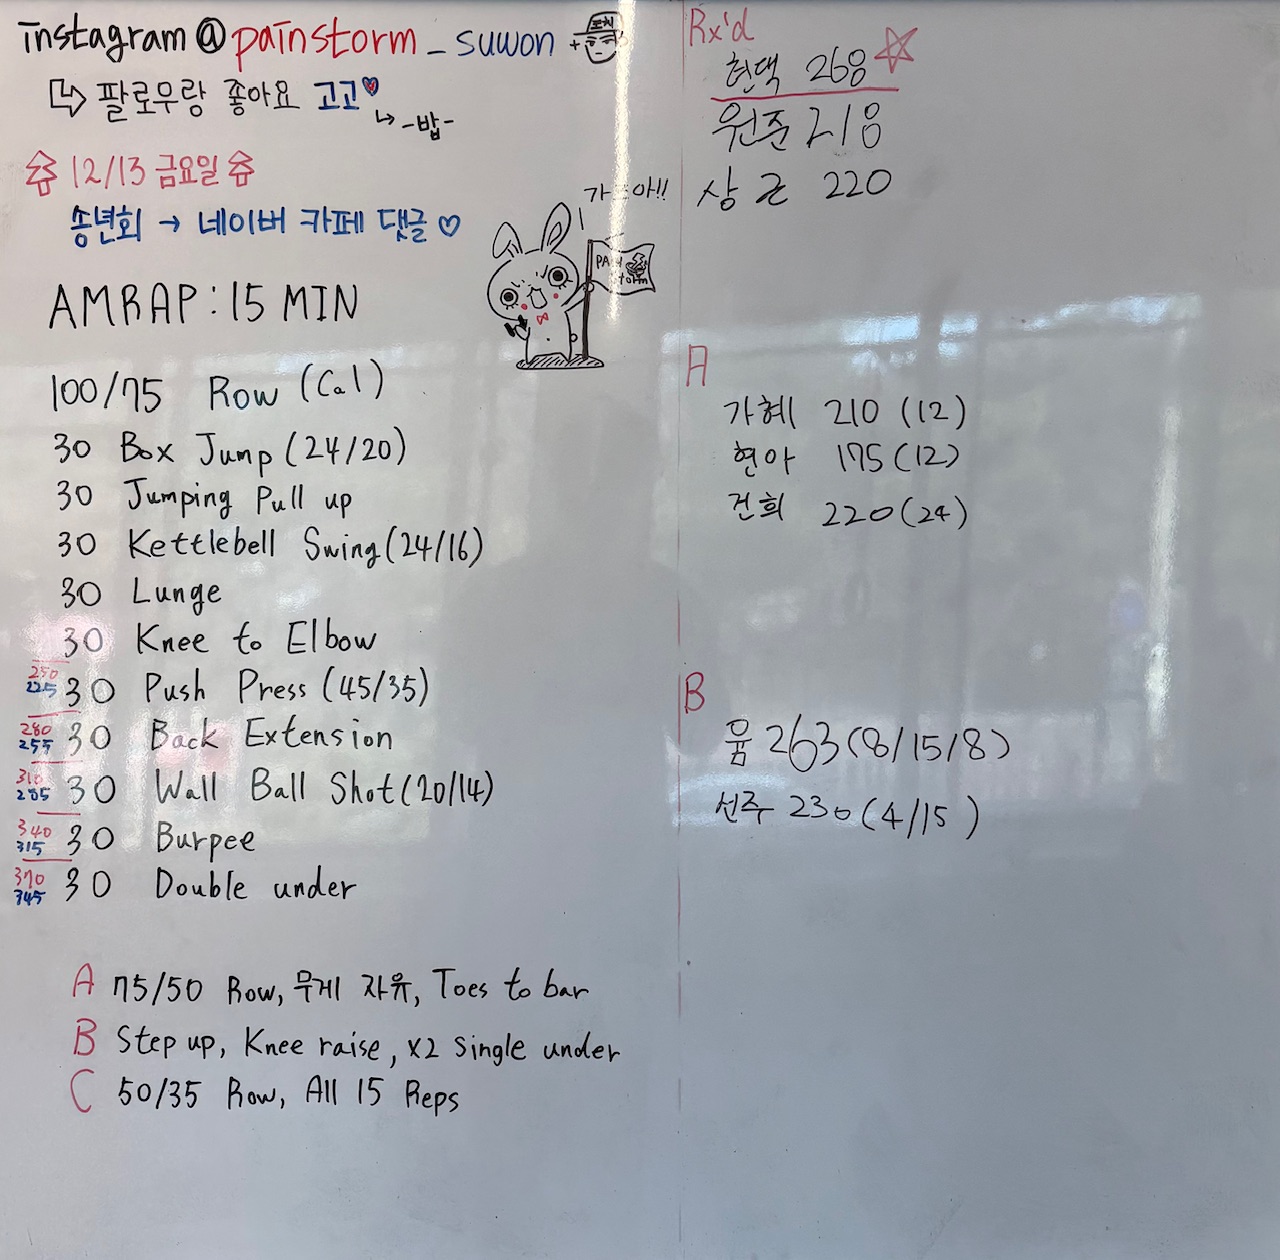 instagram@painstorm_suwon
팔로우랑 좋아요 고고
-밥-
12/13 금요일
송년회 → 네이버 카페 댓글
AMRAP : 15 MIN
100/75 Row (Cal)
30 Box Jump (24/20)
30 Jumping Pull up
30 Kettlebell Swing (24/16)
30 Lunge
30 Knee to Elbow
250
225
30 Push Press (45/35)
280
255
30 Back Extension
310
285
30 Wall Ball Shot (20/14)
340
315
30 Burpee
370
345
30 Double under
A 75/50 Row, 무게 자유, Toes to bar
B Step up, Knee raise, x2 single under
C 50/35 Row, All 15 Reps
Rx'd
현택 268
원준 218
상근 220
A
가혜 210 (12)
현아 175 (12)
건희 220 (24)
B
윰 263 (8/15/8)
선주 230 (4/15)